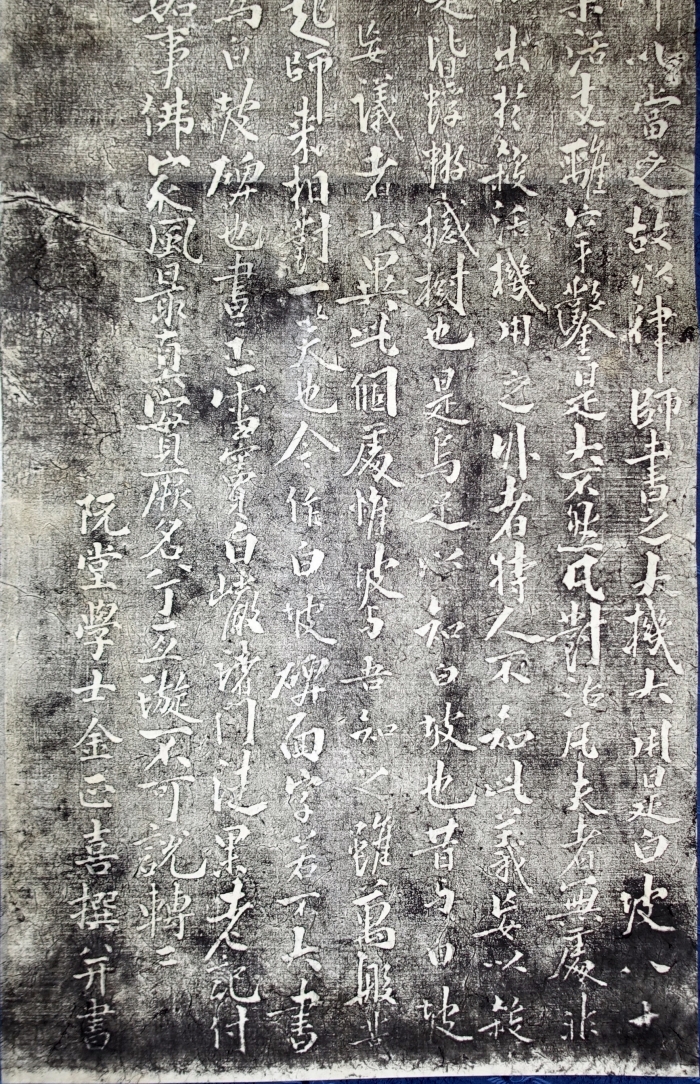 以當之故以律師書之大機大用是白坡八十
活支離穿鑿是大不然凡對治凡夫者無處非
出於殺活機用之外者特人不知此義妄以殺
是皆蜉蝣撼樹也是烏足以知白坡也昔与白坡
妄議者大異此個處惟坡与吾知之雖萬般苦
起師來相對一笑也今作白坡碑面字若不大書
爲白坡碑也書示雪竇白巖諸門徒果老記付
如事佛家風最眞實厥名兮亘璇不可說轉〻
阮堂學士金正喜撰幷書